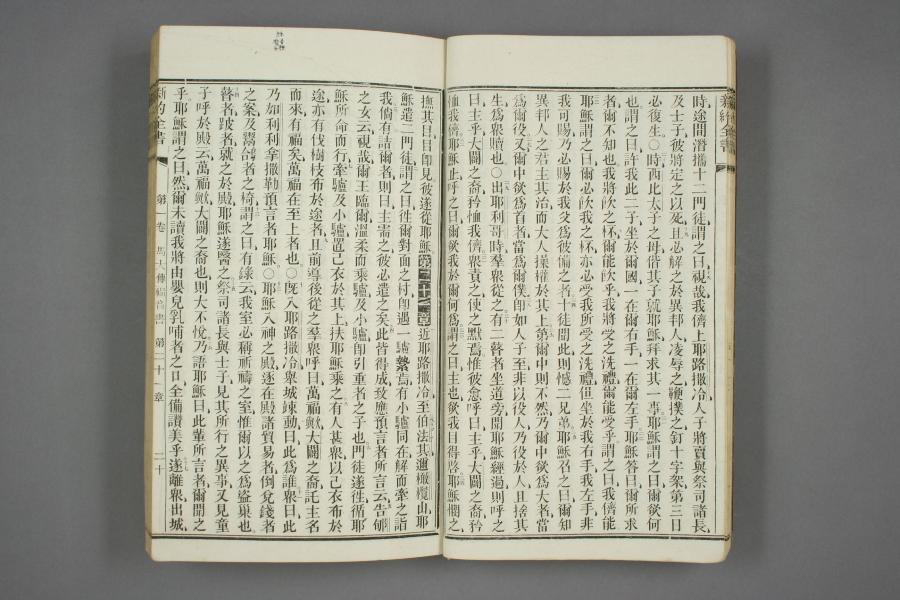 時途間潛攜十二門徒謂之曰視哉我儕上耶路撒冷人子將賣與祭司諸長
及士子彼將定之以死且必解之於異邦人凌辱之鞭撲之釘十字架第三日
必復生〇時西比太子之母偕其子就耶穌拜求其一事耶穌謂之曰爾欲何
也謂之曰許我此二子坐於爾國一在爾右手一在爾左手耶穌答曰爾所求
者爾不知也我將飲之杯爾能飲乎我將受之洗禮爾能受乎謂之曰我儕能
耶穌謂之曰爾必飲我之杯亦必受我所受之洗禮但坐於我右手我左手非
我可賜乃必賜於我父爲彼備之者十徒聞此則憾二兄弟耶穌召之曰爾知
異邦人之君主其治而大人操權於其上第爾中則不然乃爾中欲爲大者當
爲爾役又爾中欲爲首者當爲爾僕即如人子至非以役人乃役於人且捨其
生爲衆贖也〇出耶利哥時羣衆從之有二瞽者坐道旁聞耶穌經過則呼之
曰主乎大闢之裔矜恤我儕衆責之使之默焉惟彼愈呼曰主乎大闢之裔矜
恤我儕耶穌止呼之曰爾欲我於爾何爲謂之曰主也欲我目得啓耶穌憫之
新約全書
撫其目目即見彼遂從耶穌第二十一章近耶路撒冷至伯法其邇橄欖山耶
穌遣二門徒謂之曰徃爾對面之村即遇一驢縶焉有小驢同在解而牽之詣
我倘有詰爾者則曰主需之彼必遣之矣此皆得成致應預言者所言云告郇
之女云視哉爾王臨爾溫柔而乘驢及小驢即引重者之子也門徒遂徃循耶
穌所命而行牽驢及小驢置己衣於其上扶耶穌乘之有人甚衆以己衣布於
途亦有伐樹枝布於途者且前導後從之羣衆呼曰萬福歟大闢之裔託主名
而來有福矣萬福在至上者也〇旣入耶路撒冷舉城竦動曰此爲誰衆曰此
乃加利利拿撒勒預言者耶穌〇耶穌入神之殿逐在殿諸貿易者倒兌錢者
之案及鬻鴿者之椅謂之曰有錄云我室必稱祈禱之室惟爾以之爲盜巢也
瞽者跛者就之於殿耶穌遂醫之祭司諸長與士子見其所行之異事又見童
子呼於殿云萬福歟大闢之裔也則大不悅乃語耶穌曰此輩所言者爾聞之
乎耶穌謂之曰然爾未讀我將由嬰兒乳哺者之口全備讚美乎遂離衆出城
新約全書 第一卷 馬太傳福音書 第二十一章 二十